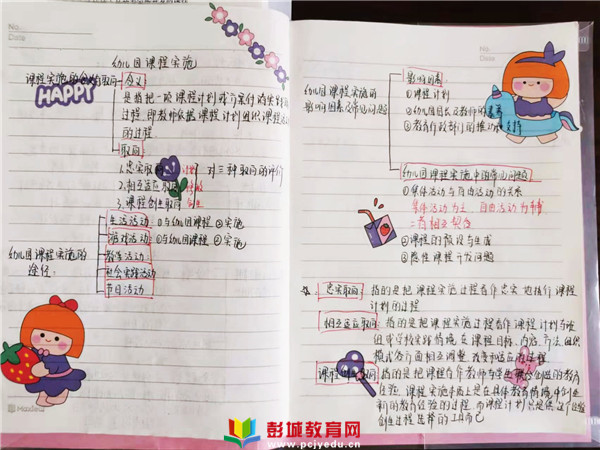 No.
Date
幼儿园课程实施
课程实施的含义和取向
含义
是指把一项课程计划或方案付诸实践的
过程,即教师依据课程计划组织课程活动
的过程.
取向:
1.忠实取向
2.相互适应取向
3.课程创生取向
对三种取向的评价
HAPPY
生活活动:①与幼儿园课程②实施
游戏活动:①与幼儿园课程②实施
幼儿园课程实施的
途径:
教学活动:
社会实践活动
节日活动
No.
Date
幼儿园课程实施的
影响因素及常见问题
影响因素:
①课程计划
②幼儿园园长及教师的素养
③教育行政部门的推动和支持
幼儿园课程实施中的常见问题
①集体活动与自由活动的关系
集体活动为主,自由活动为辅
二者相互契合
②课程的预设与生成
③园性课程开发问题
忠实取向:指的是把课程实施过程看作忠实地执行课程
计划的过程
相互适应取向:指的是把课程实施过程看作课程计划与班
级或学校实践情境在课程目标、内容、方法、组织
模式各方面相互调整、改变与适应的过程
课程创生取向:指的是把课程看作教师与学生联合创造的教育
经验,课程实施本质上是在具体教育情境中创生
新的教育经验的过程,而课程计划只是供这个经验
创生过程选择的工具而已
彭城教育网
www.pcjyedu.cn